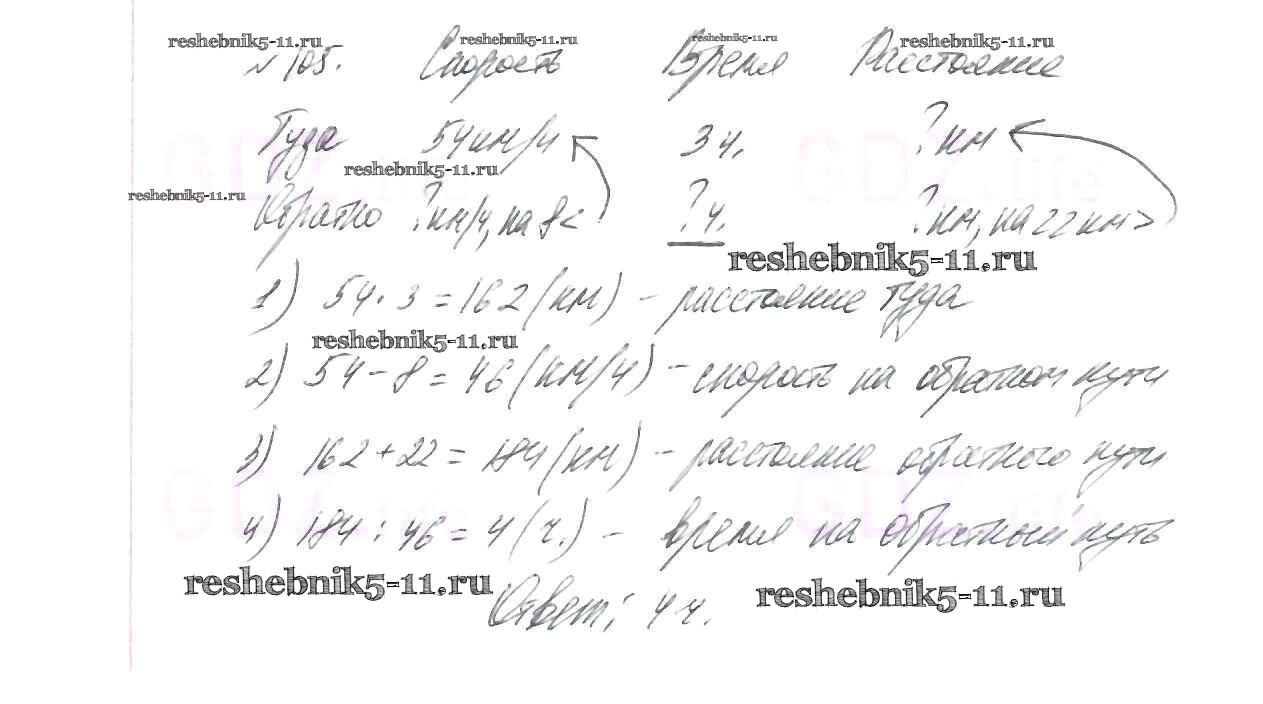 reshebnik5-11.ru reshebnik5-11.ru reshebnik5-11.ru reshebnik5-11.ru
№ 105. Скорость Время Расстояние
Туда 54 км/ч 3 ч. ? км
reshebnik5-11.ru
reshebnik5-11.ru
Обратно ? км/ч, на 8 < ? ч. ? км, на 22 км >
reshebnik5-11.ru
1) 54 · 3 = 162 (км) – расстояние туда
reshebnik5-11.ru
2) 54 – 8 = 46 (км/ч) – скорость на обратном пути
3) 162 + 22 = 184 (км) – расстояние обратного пути
4) 184 : 46 = 4 (ч.) – время на обратный путь
reshebnik5-11.ru reshebnik5-11.ru
Ответ: 4 ч.